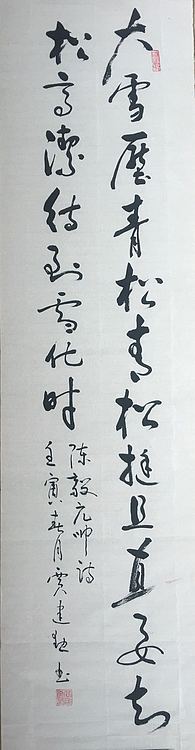 大雪壓青松青松挺且直要知
松高潔待到雪化時
陈毅元帅詩
壬寅春月賈建勋书